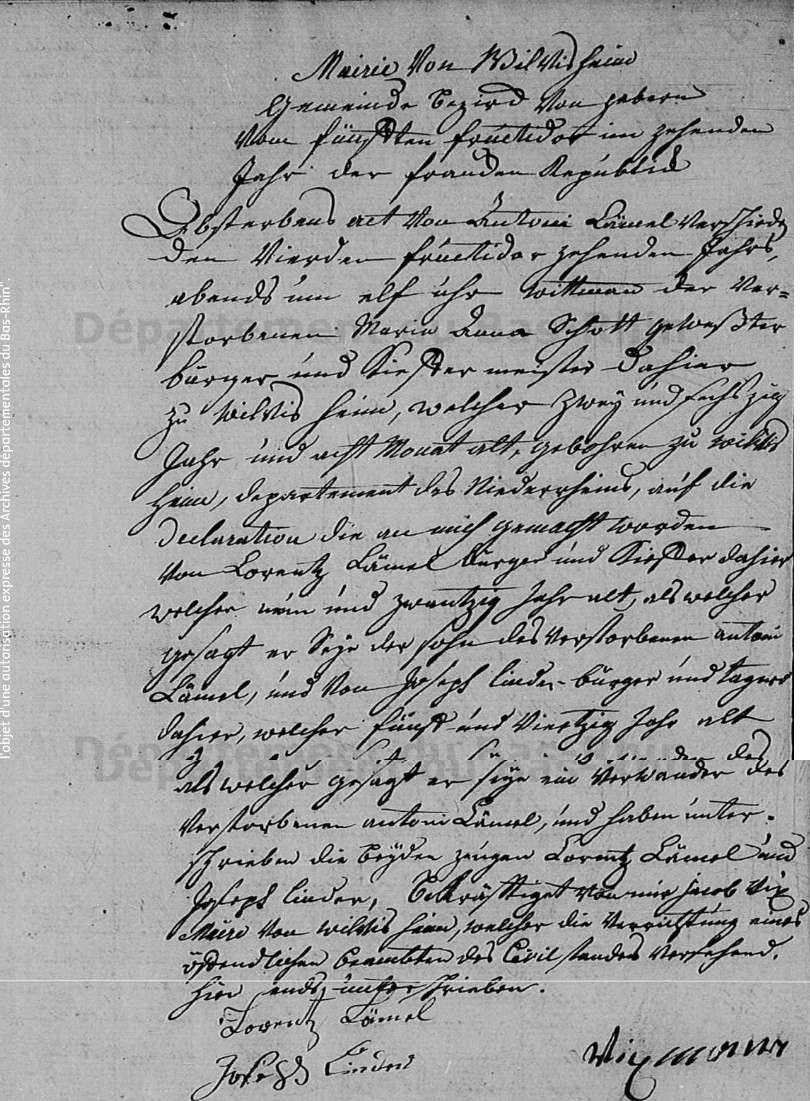 Mairie Von Wilvisheim
Gemeinde Bezird Von zabern
Vom fünfften fructidor im zehenden
Jahr der franden Republick
Absterbens act Von Antoni Lämel Verschieden
den Vierden fructidor zehenden Jahrs,
abends um elf uhr wittman der Ver=
storbenen Maria Anna Schott geweßter
bürger und Kieffer meister dahier
zu wilvis heim, welcher zwey und sechszig
Jahr und acht Monat alt, gebohren zu wilvis
heim, departement des Niederrheins, auf die
declaration die an mich gemacht worden
Von Lorentz Lämel bürger und Kieffer dahier
welcher nein und zwantzig Jahr alt, als welcher
gesagt er Seye der sohn des Verstorbenen antoni
Lämel, und Von Joseph linder bürger und tagner
dahier, welcher fünff und Viertzig Jahr alt
als welcher gesagt er seye ein Verwander des
Verstorbenen antoni Lämel, und haben unter=
schrieben die beyden zeugen Lorentz Lämel und
Joseph linder, bekräfftiget Von mir jacob Vix
Maire Von wilvis heim, welcher die Verrichtung eines
öffendlichen beambten des Civil standes Versehend.
hier ends unterschrieben.
Lorentz Lämel
Joseph Linder
Vix maire
Département du Bas-Rhin
l'objet d'une autorisation expresse des Archives départementales du Bas-Rhin".